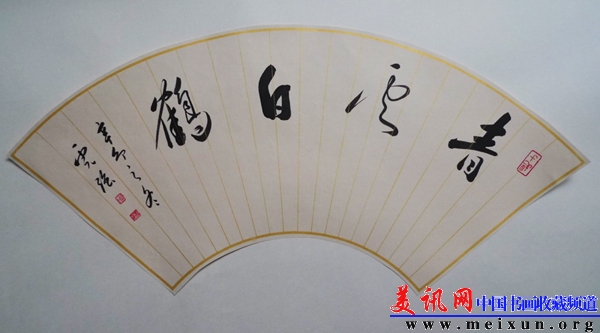 青云白鹤
辛卯之冬
云强
美讯网 中国书画收藏频道
www.meixun.org